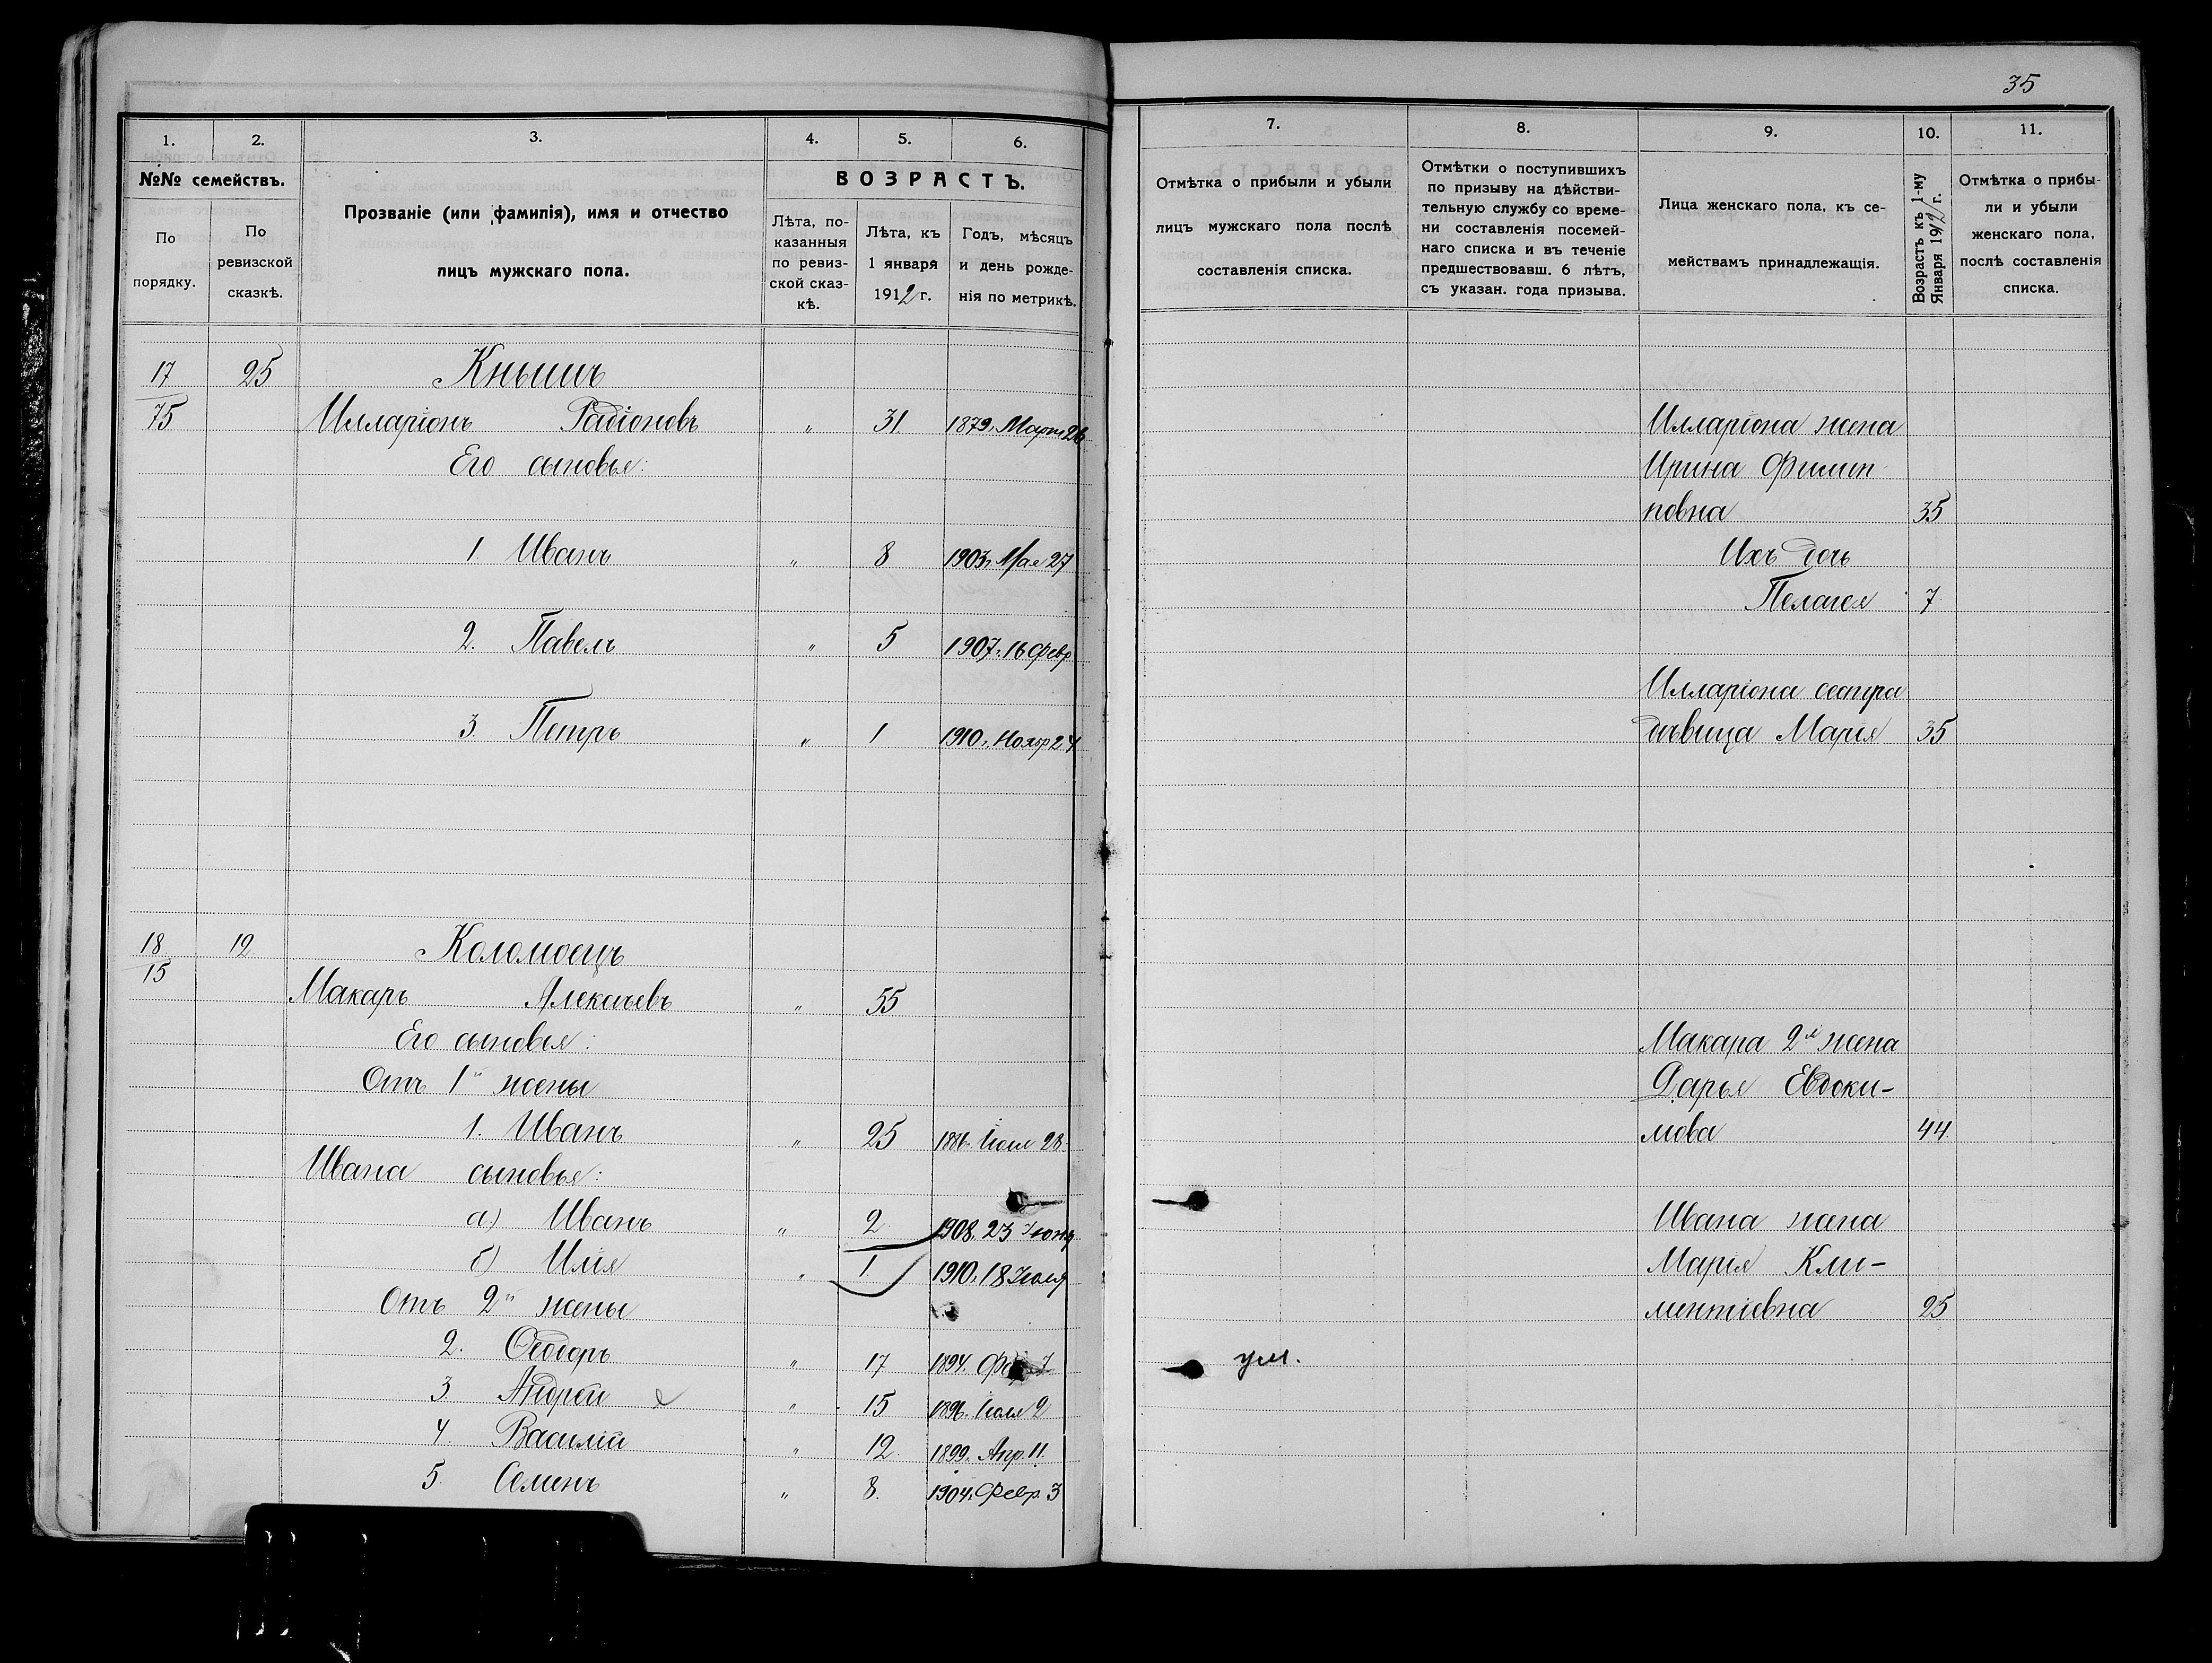 35
1. 2. 3. 4. 5. 6.
№№ семействъ.
По порядку.
По ревизской сказкѣ.
Прозваніе (или фамилія), имя и отчество
лицъ мужскаго пола.
ВОЗРАСТЪ.
Лѣта, по-
казанныя
по ревиз-
ской сказ-
кѣ.
Лѣта, къ
1 января
1912 г.
Годъ, мѣсяцъ
и день рожде-
нія по метрикѣ.
17 25 Кнышъ
75 Илларіонъ Радіоновъ " 31 1879. Март 26
Его сыновья:
1. Иванъ " 8 1903. Мая 27
2. Павелъ " 5 1907. 16 Февр
3 Петръ " 1 1910. Ноябр 24
18 12 Коломоецъ
15 Макаръ Алексѣевъ " 55
Его сыновья:
Отъ 1й жены
1. Иванъ " 25 1886. Іюля 28
Ивана сыновья:
а) Иванъ " 2 1908. 23
б) Илія " 1 1910. 18 Іюля
Отъ 2й жены
2. Ѳеодоръ " 17 1894. 7
3 Андрей " 15 1896. Іюля 2
4. Василій " 12 1899. Апр. 11
5. Семенъ " 8. 1904. Февр. 3
7. 8. 9. 10. 11.
Отмѣтка о прибыли и убыли
лицъ мужскаго пола послѣ
составленія списка.
Отмѣтки о поступившихъ
по призыву на дѣйстви-
тельную службу со време-
ни составленія посемей-
наго списка и въ теченіе
предшествовавш. 6 лѣтъ,
съ указан. года призыва.
Лица женскаго пола, къ се-
мействамъ принадлежащія.
Возрастъ къ 1-му
Января 1912 г.
Отмѣтка о прибы-
ли и убыли
женскаго пола,
послѣ составленія
списка.
Илларіона жена
Ирина Филип
повна 35
Ихъ дочь
Пелагея 7
Илларіона сестра
дѣвица Марія 35
Макара 2я жена
Дарья Евдоки-
мова 44
Ивана жена
Марія Кли-
ментіевна 25
ум.